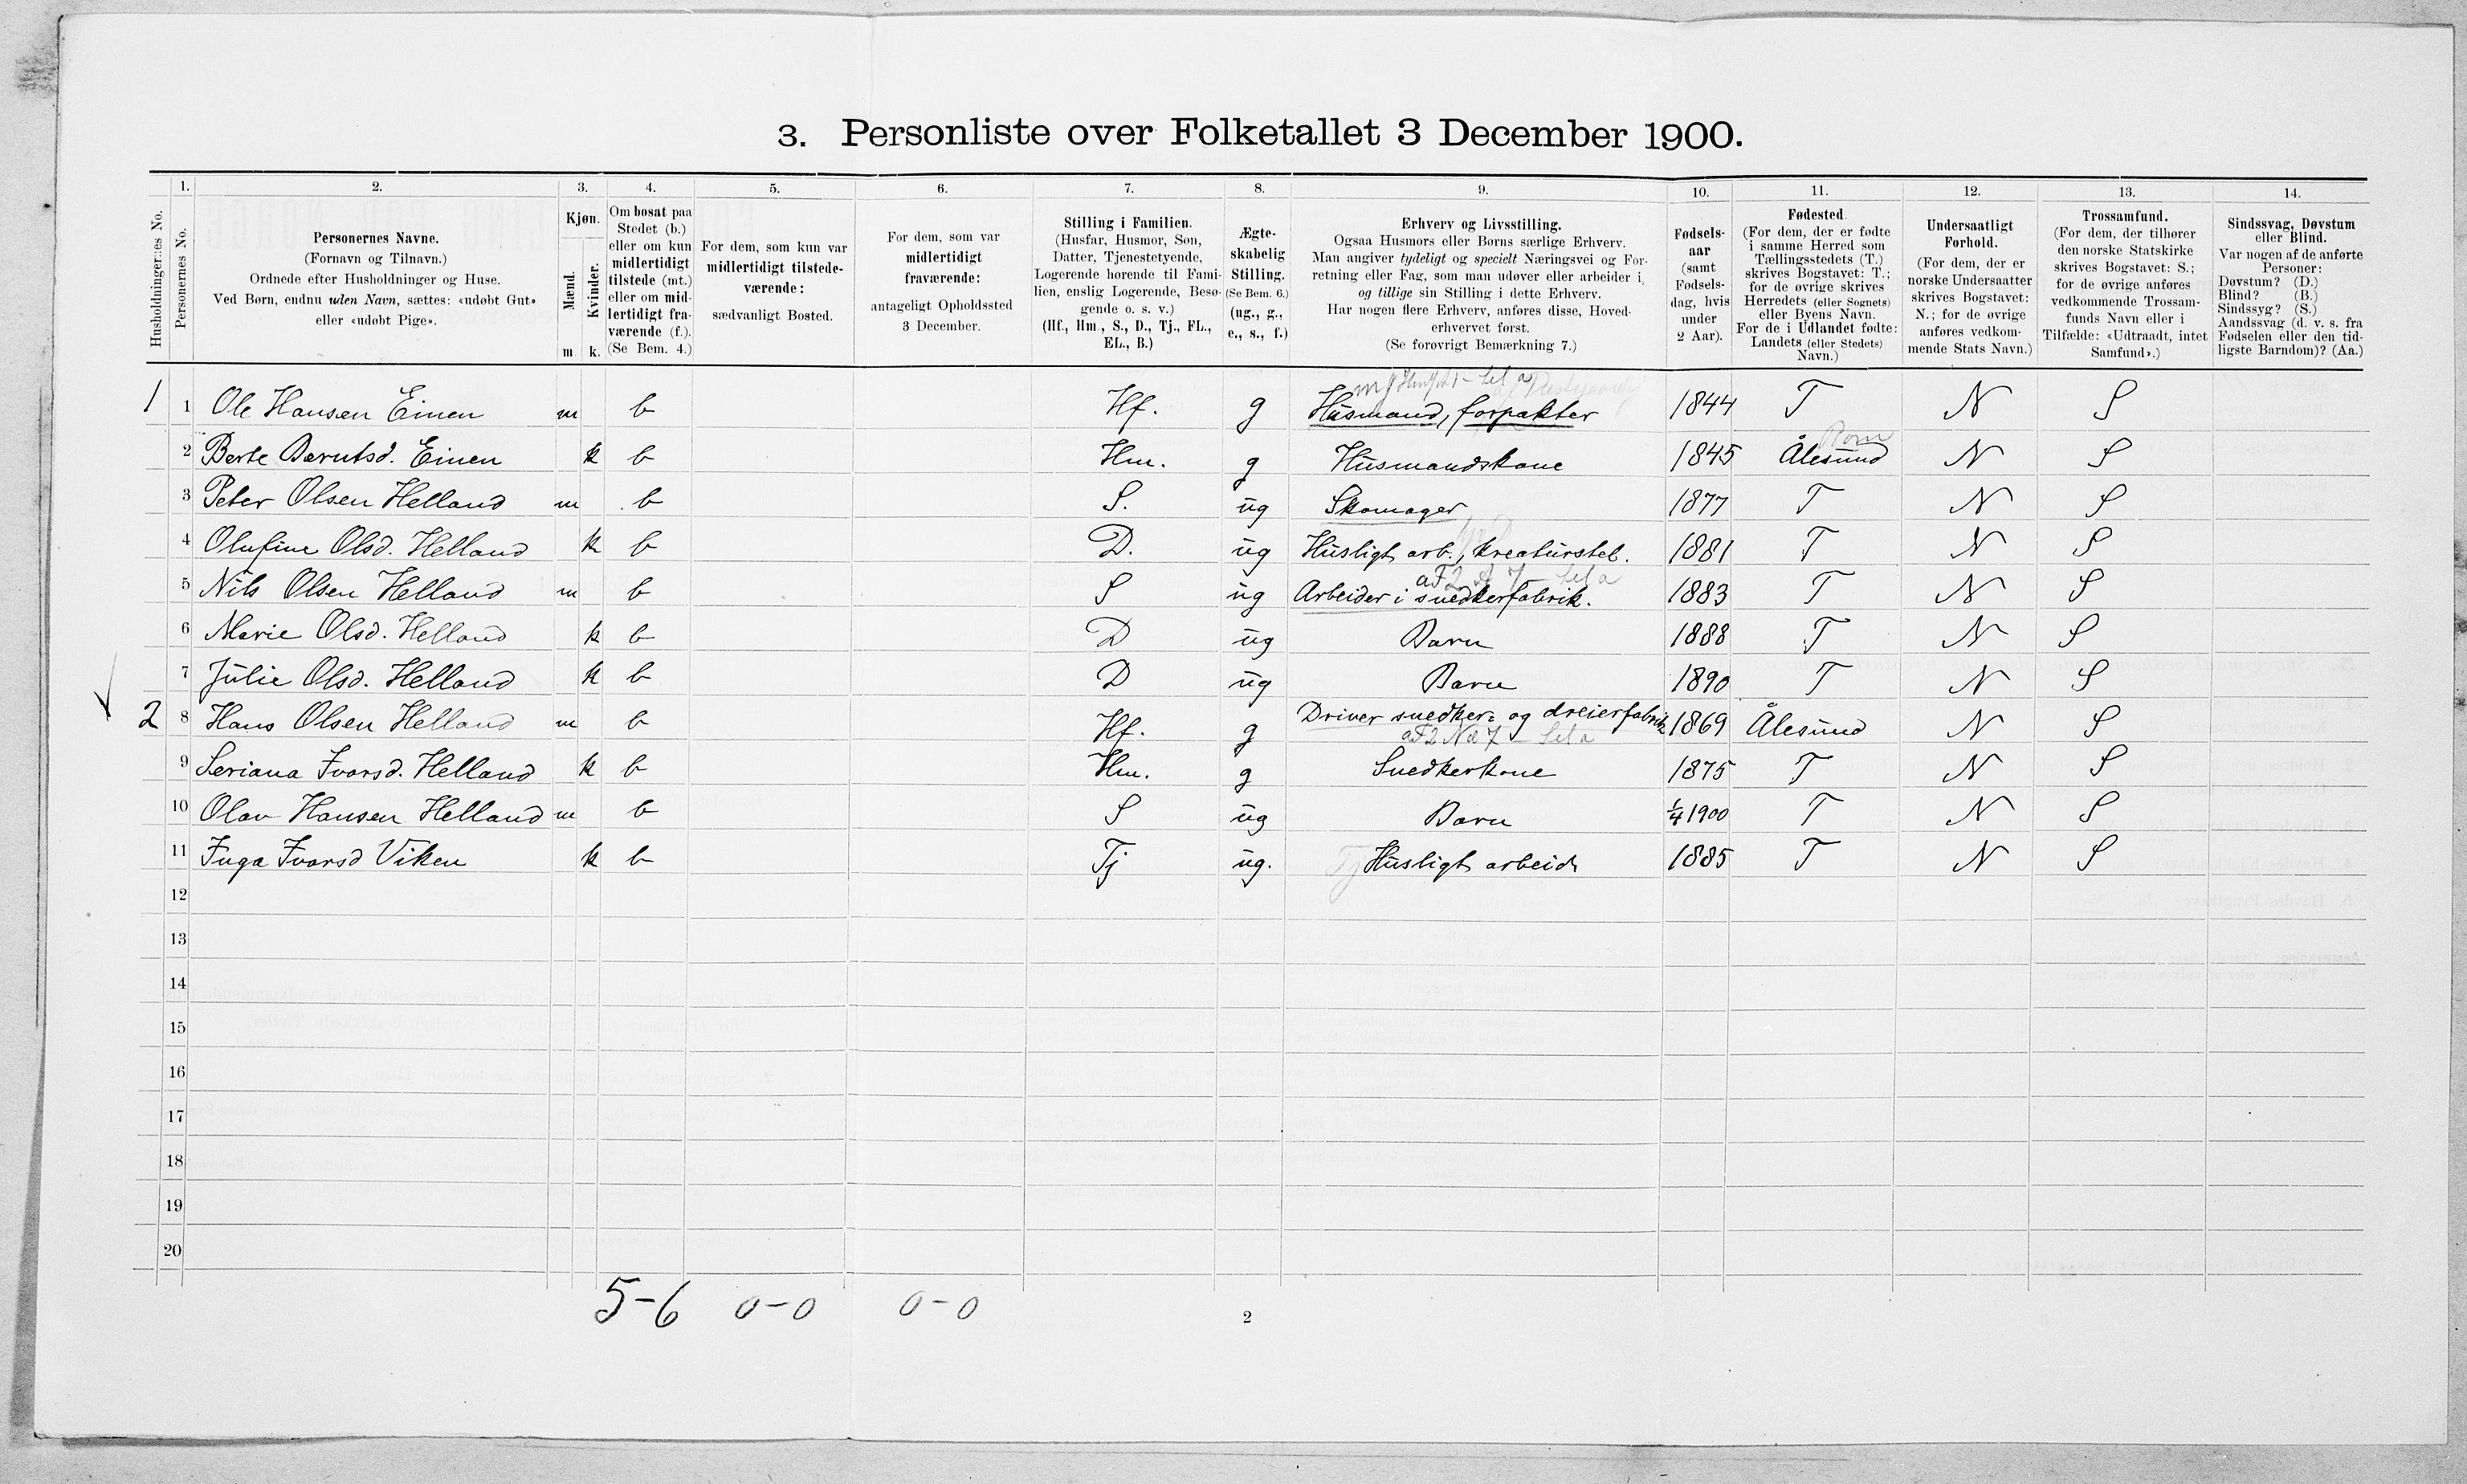 3. Personliste over Folketallet 3 December 1900.
1. 2. 3. 4. 5. 6. 7. 8. 9. 10. 11. 12. 13. 14.
Husholdningernes No.
Personernes No.
Personernes Navne.
(Fornavn og Tilnavn.)
Ordnede efter Husholdninger og Huse.
Ved Børn, endnu uden Navn, sættes: «udøbt Gut»
eller «udøbt Pige».
Kjøn.
Mænd.
Kvinder.
m k.
Om bosat paa
Stedet (b.)
eller om kun
midlertidigt
tilstede (mt.)
eller om mid-
lertidigt fra-
værende (f.).
(Se Bem. 4.)
For dem, som kun var
midlertidigt tilstede-
værende:
sædvanligt Bosted.
For dem, som var
midlertidigt
fraværende:
antageligt Opholdssted
3 December.
Stilling i Familien.
(Husfar, Husmor, Søn,
Datter, Tjenestetyende,
Logerende hørende til Fami-
lien, enslig Logerende, Besø-
gende o. s. v.)
(Hf., Hm., S., D., Tj., FL.,
EL., B.)
Ægte-
skabelig
Stilling.
(Se Bem. 6.)
(ug., g.,
e., s., f.)
Erhverv og Livsstilling.
Ogsaa Husmors eller Børns særlige Erhverv.
Man angiver tydeligt og specielt Næringsvei og For-
retning eller Fag, som man udøver eller arbeider i,
og tillige sin Stilling i dette Erhverv.
Har nogen flere Erhverv, anføres disse, Hoved-
erhvervet først.
(Se forøvrigt Bemærkning 7.)
Fødsels-
aar
(samt
Fødsels-
dag, hvis
under
2 Aar).
Fødested.
(For dem, der er fødte
i samme Herred som
Tællingsstedets (T.)
skrives Bogstavet: T.;
for de øvrige skrives
Herredets (eller Sognets)
eller Byens Navn.
For de i Udlandet fødte:
Landets (eller Stedets)
Navn.)
Undersaatligt
Forhold.
(For dem, der er
norske Undersaatter
skrives Bogstavet:
N.; for de øvrige
anføres vedkom-
mende Stats Navn.)
Trossamfund.
(For dem, der tilhører
den norske Statskirke
skrives Bogstavet: S.;
for de øvrige anføres
vedkommende Trossam-
funds Navn eller i
Tilfælde: «Udtraadt, intet
Samfund».)
Sindssvag, Døvstum
eller Blind.
Var nogen af de anførte
Personer:
Døvstum? (D.)
Blind? (B.)
Sindssyg? (S.)
Aandssvag (d. v. s. fra
Fødselen eller den tid-
ligste Barndom)? (Aa.)
1 1 Ole Hansen Einen m b Hf. g Husmand, forpakter 1844 T N S
2 Berte Berntsd. Einen k b Hm. g Husmandskone 1845 Ålesund N S
3 Peter Olsen Helland m b S. ug Skomager 1877 T N S
4 Olufine Olsd. Helland k b D. ug Husligt arb., kreaturstel. 1881 T N S
5 Nils Olsen Helland m b S ug Arbeider i snedkerfabrik. 1883 T N S
6 Marie Olsd. Helland k b D ug Barn 1888 T N S
7 Julie Olsd. Helland k b D ug Barn 1890 T N S
2 8 Hans Olsen Helland m b Hf. g Driver snedker= og dreierfabrik 1869 Ålesund N S
9 Seriana Ivarsd. Helland k b Hm. g Snedkerkone 1875 T N S
10 Olav Hansen Helland m b S ug Barn 1/4 1900 T N S
11 Inga Ivarsd Viken k b Tj ug. Tj Husligt arbeid 1885 T N S
12
13
14
15
16
17
18
19
20
5-6 0-0 0-0
2